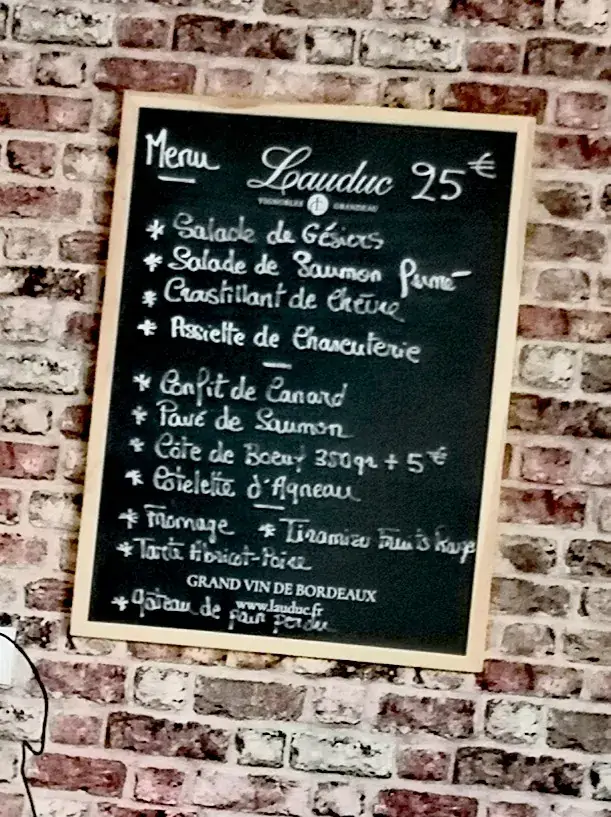 Menu Lauduc 25€
VIGNOBLES GRANDEAU
* Salade de Gésiers
* Salade de Saumon Fumé
* Croustillant de Chèvre
* Assiette de Charcuterie
* Confit de Canard
* Pavé de Saumon
* Côte de Boeuf 350gr + 5€
* Côtelette d'Agneau
* Fromage * Tiramisu Fruits Rouge
* Tarte Abricot-Poire
GRAND VIN DE BORDEAUX
www.lauduc.fr
* Gâteau de pain perdu